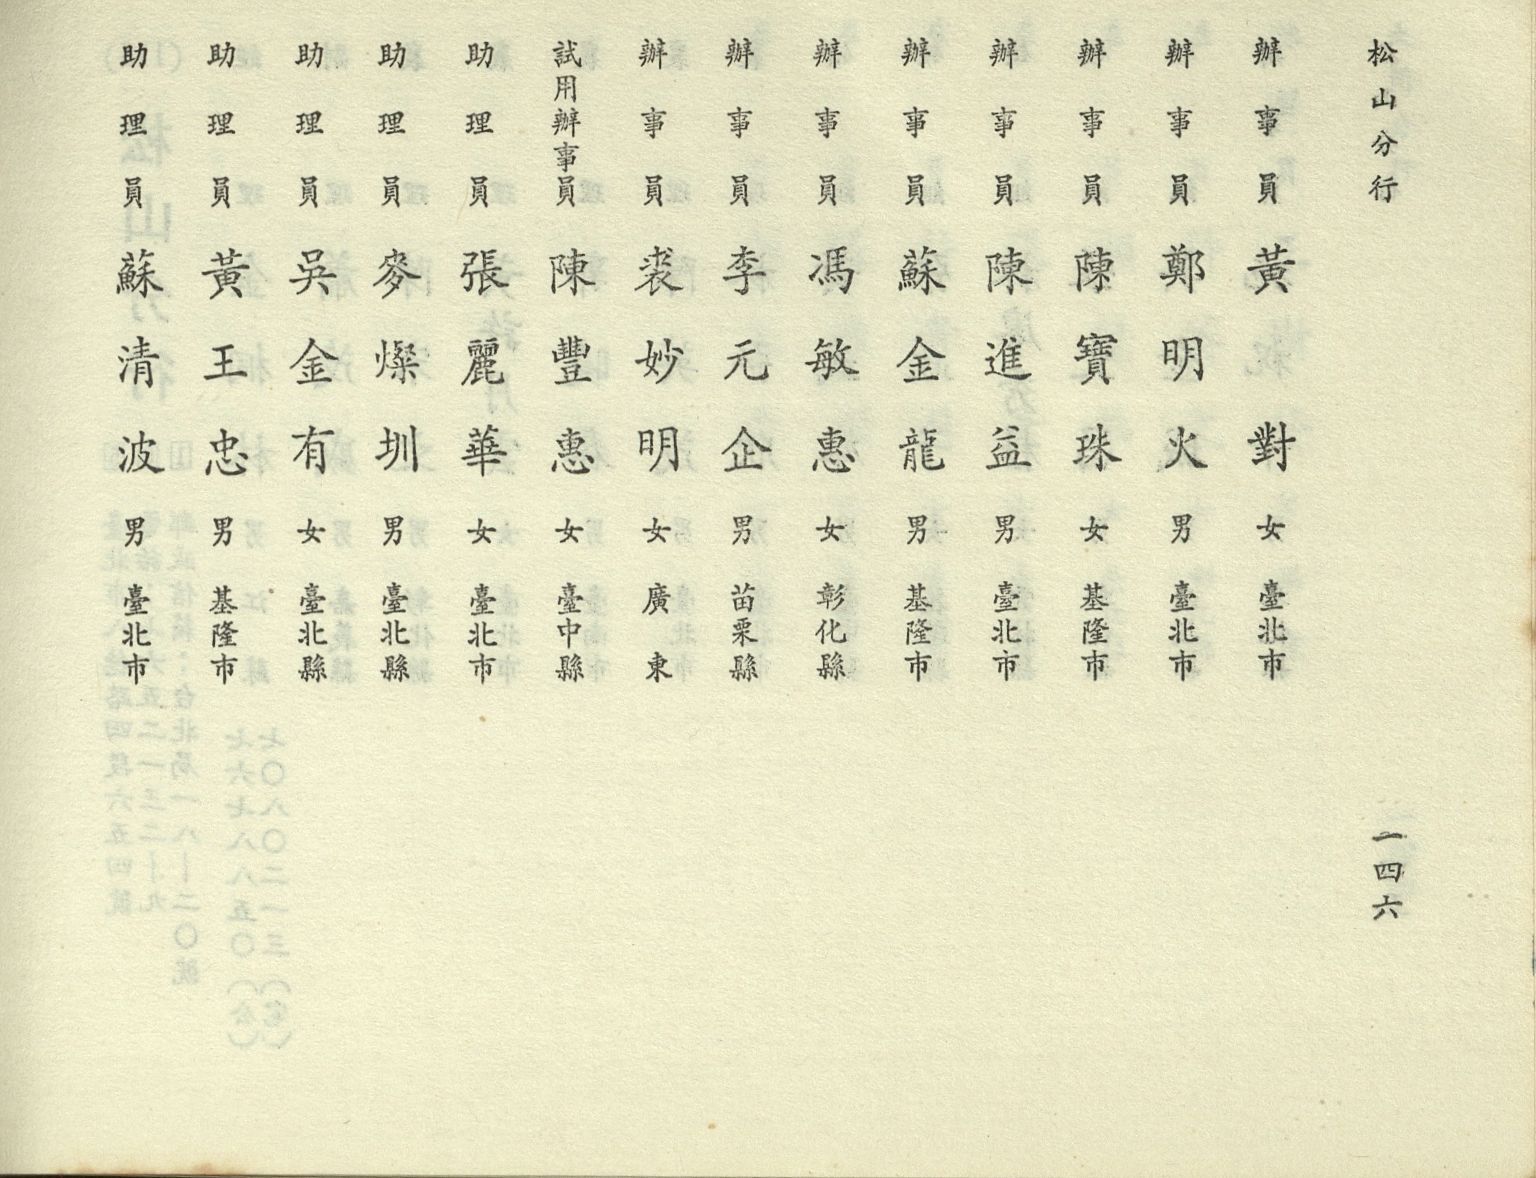 松山分行
一四六
辦事員 黃對 女 臺北市
辦事員 鄭明火 男 臺北市
辦事員 陳寶珠 女 基隆市
辦事員 陳進益 男 臺北市
辦事員 蘇金龍 男 基隆市
辦事員 馮敏惠 女 彰化縣
辦事員 李元企 男 苗栗縣
辦事員 裘妙明 女 廣東
試用辦事員 陳豐惠 女 臺中縣
助理員 張麗華 女 臺北市
助理員 麥燦圳 男 臺北縣
助理員 吳金有 女 臺北縣
助理員 黃王忠 男 基隆市
助理員 蘇清波 男 臺北市